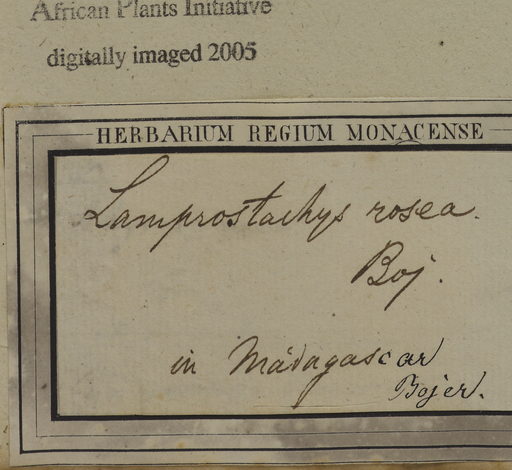 African Plants Initiative
digitally imaged 2005
HERBARIUM REGIUM MONACENSE
Lamprostachys rosea.
Boj.
in Madagascar
Bojer.